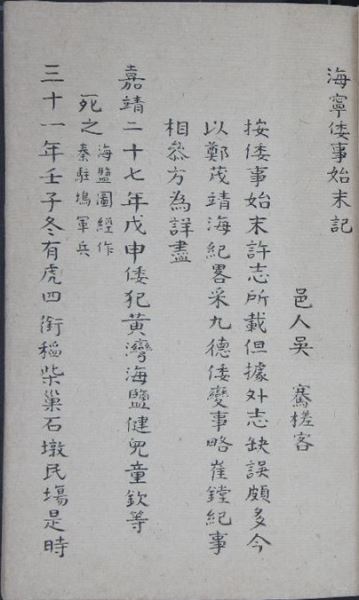 海寧倭事始末記
邑人吳 騫槎客
按倭事始末許志所載但據外志缺誤頗多今
以鄭茂靖海紀畧采九德倭變事略崔鏜紀事
相叅方為詳盡
嘉靖二十七年戊申倭犯黄灣海鹽健兒童欽等
死之海鹽圖經作
秦駐塢軍兵
三十一年壬子冬有虎四銜稻柴巢石墩民塲是時